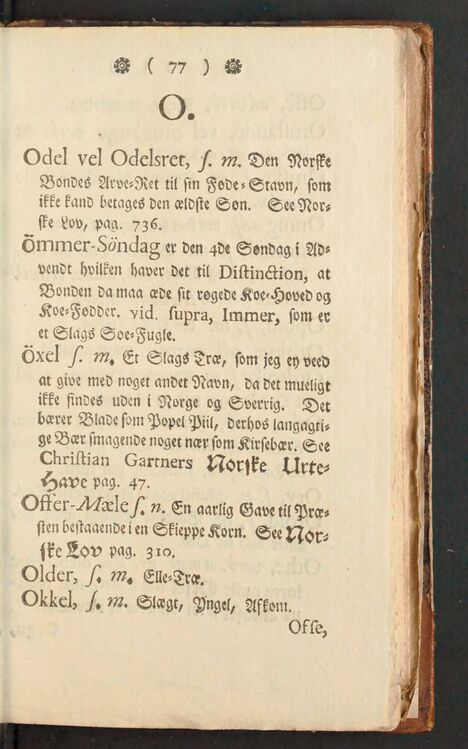 ( 77 )
O.
Odel vel Odelsret, s. m. Den Norske
Bondes Arve-Ret til sin Føde-Stavn, som
ikke kand betages den ældste Søn. See Nor-
ske Lov, pag. 736.
ömmer-Söndag er den 4de Søndag i Ad-
vendt hvilken haver det til Distinction, at
Bonden da maa æde sit røgede Koe-Hoved og
Koe-Fødder. vid. supra, Immer, som er
et Slags Soe-Fugle.
öxel s. m. Et Slags Træ, som jeg ey veed
at give med noget andet Navn, da det mueligt
ikke findes uden i Norge og Sverrig. Det
bærer Blade som Popel Piil, derhos langagti-
ge Bær smagende noget nær som Kirsebær. See
Christian Gartners Norske Urte-
Have pag. 47.
Offer-Mæle s. n. En aarlig Gave til Præ-
sten bestaaende i en Skieppe Korn. See Nor-
ske Lov pag. 310.
Older, s. m. Elle-Træ.
Okkel, s. m. Slægt, Yngel, Afkom.
Ofse,